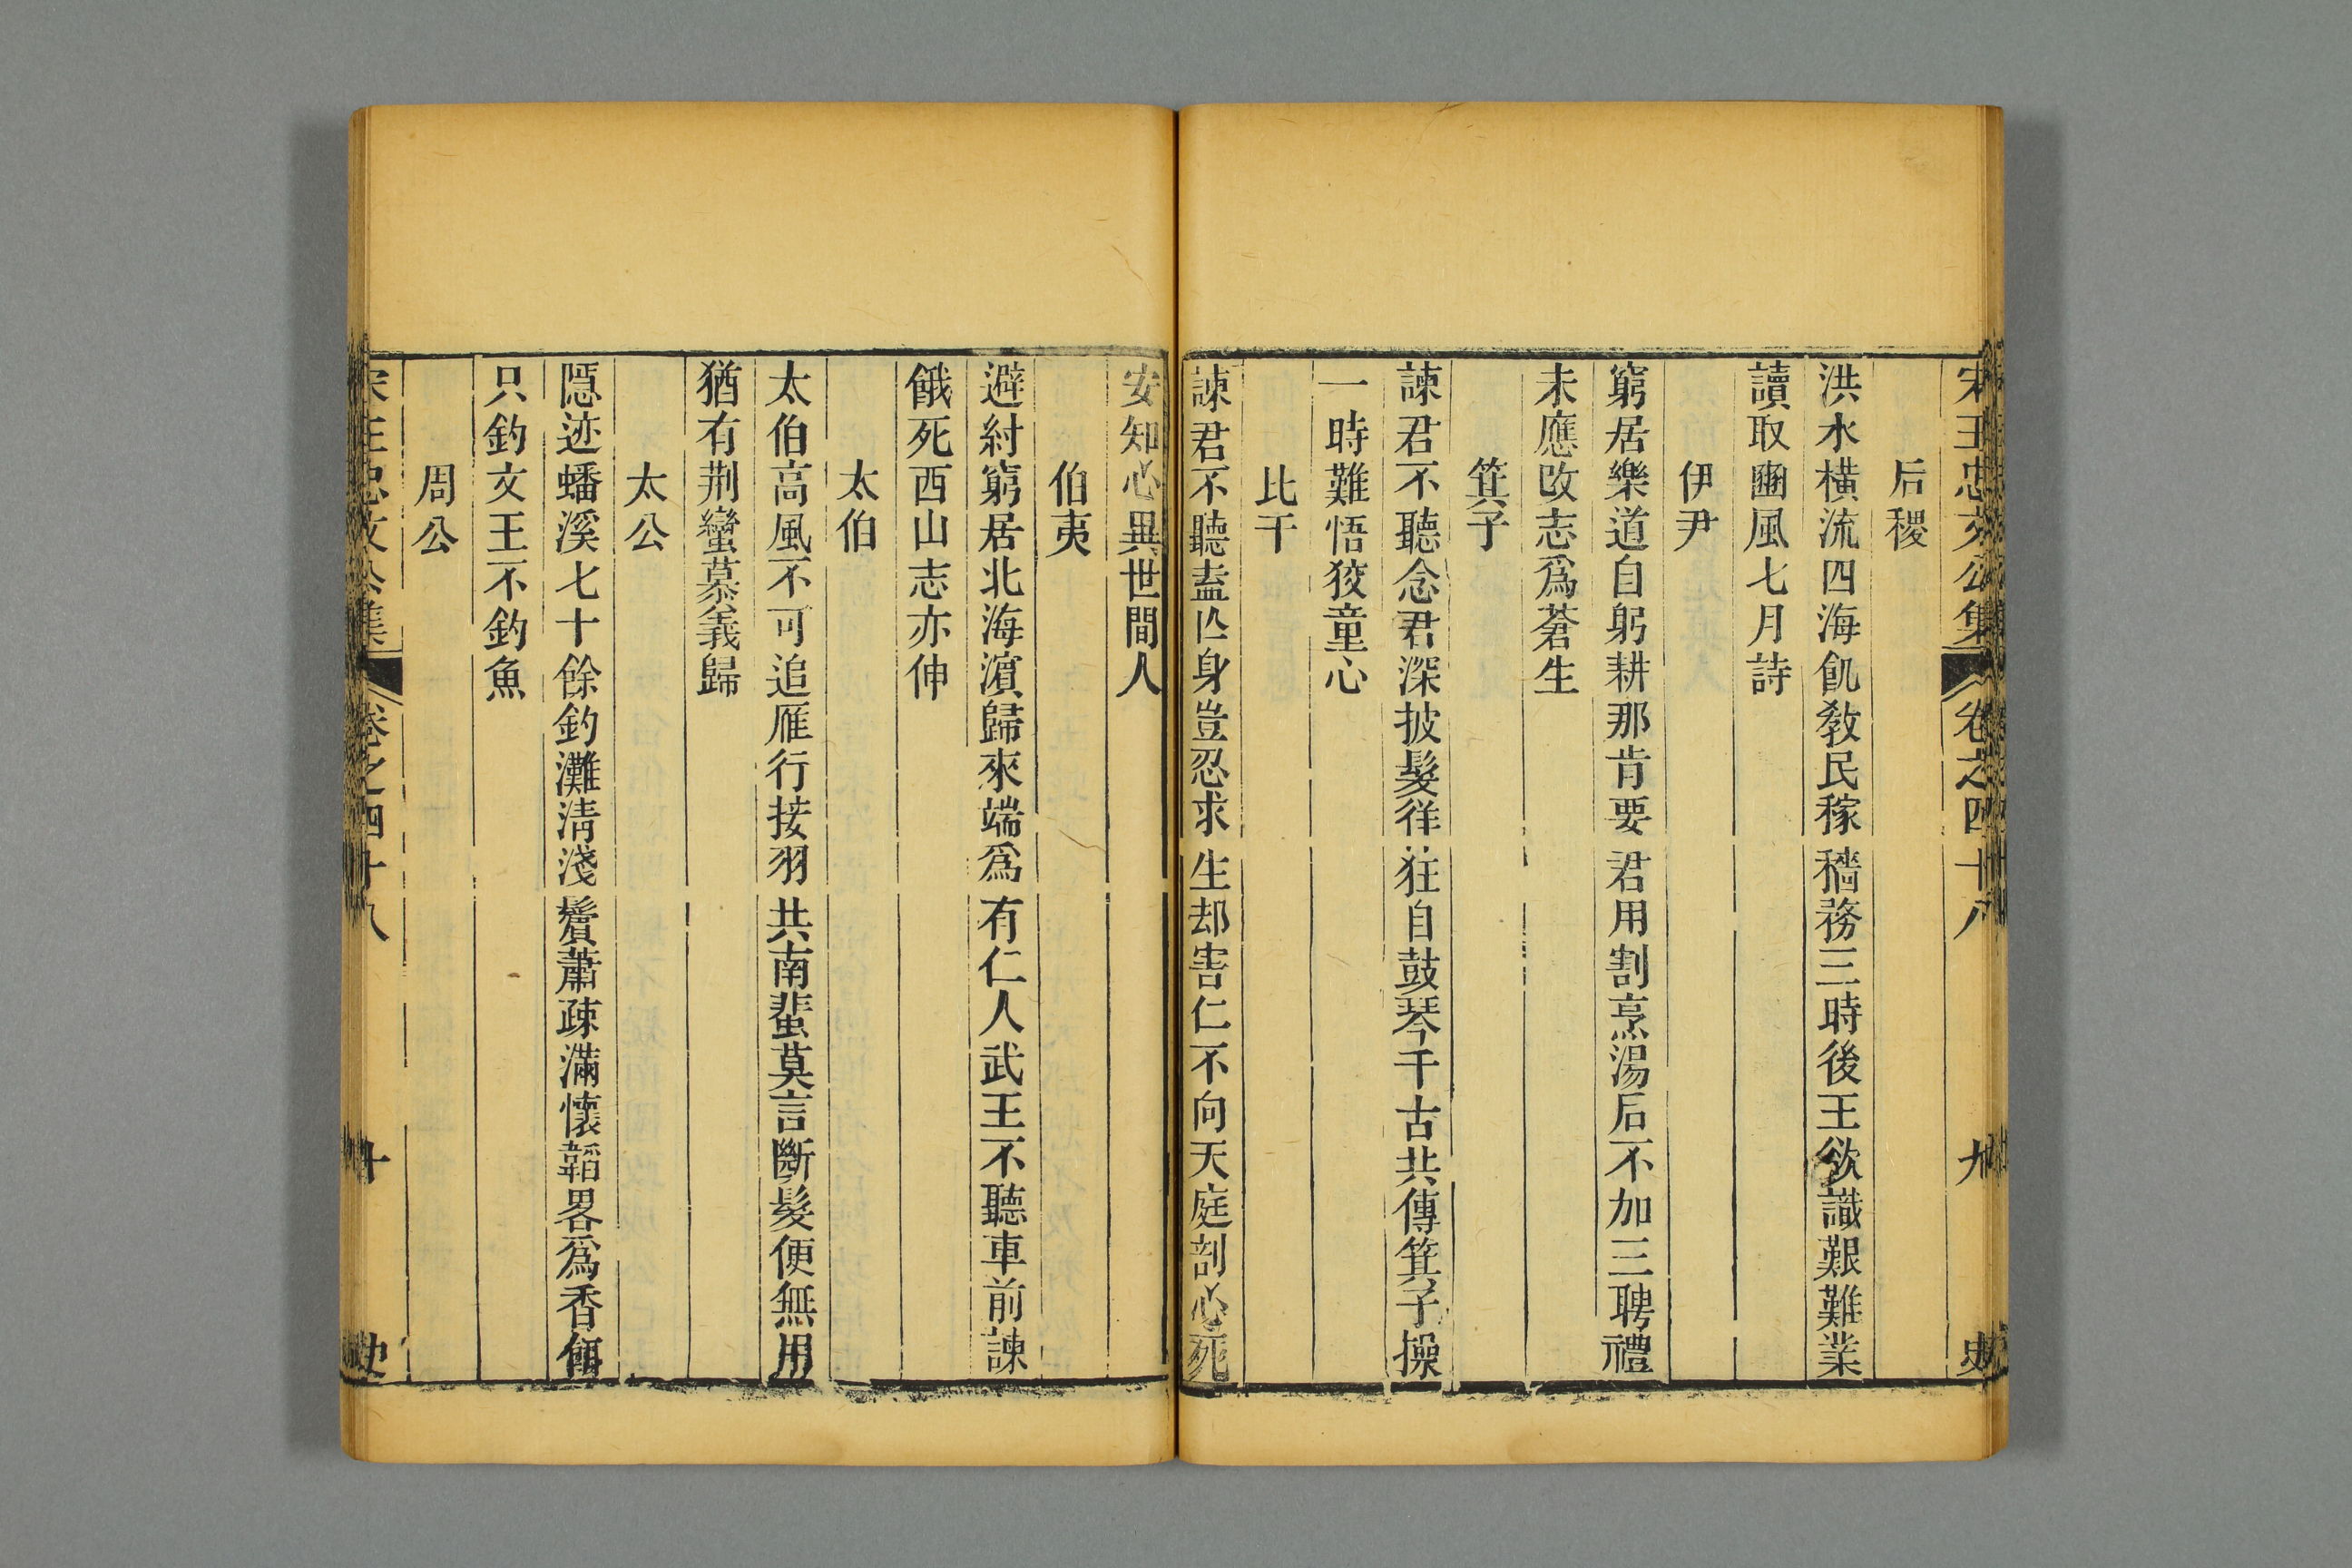 宋王忠文公集 卷之四十八 九 史
后稷
洪水橫流四海飢敎民稼穡務三時後王欲識艱難業
讀取豳風七月詩
伊尹
窮居樂道自躬耕那肯要君用割烹湯后不加三聘禮
未應改志爲蒼生
箕子
諫君不聽念君深披髮徉狂自鼓琴千古共傳箕子操
一時難悟狡童心
比干
諫君不聽盍亾身豈忍求生却害仁不向天庭剖心死
安知心異世間人
伯夷
避紂窮居北海濵歸來端爲有仁人武王不聽車前諫
餓死西山志亦伸
太伯
太伯高風不可追雁行接羽共南蜚莫言斷髮便無用
猶有荆蠻慕義歸
太公
隱迹蟠溪七十餘釣灘淸淺鬢蕭疎滿懷韜畧爲香餌
只釣文王不釣魚
周公
宋王忠文公集 卷之四十八 十 史